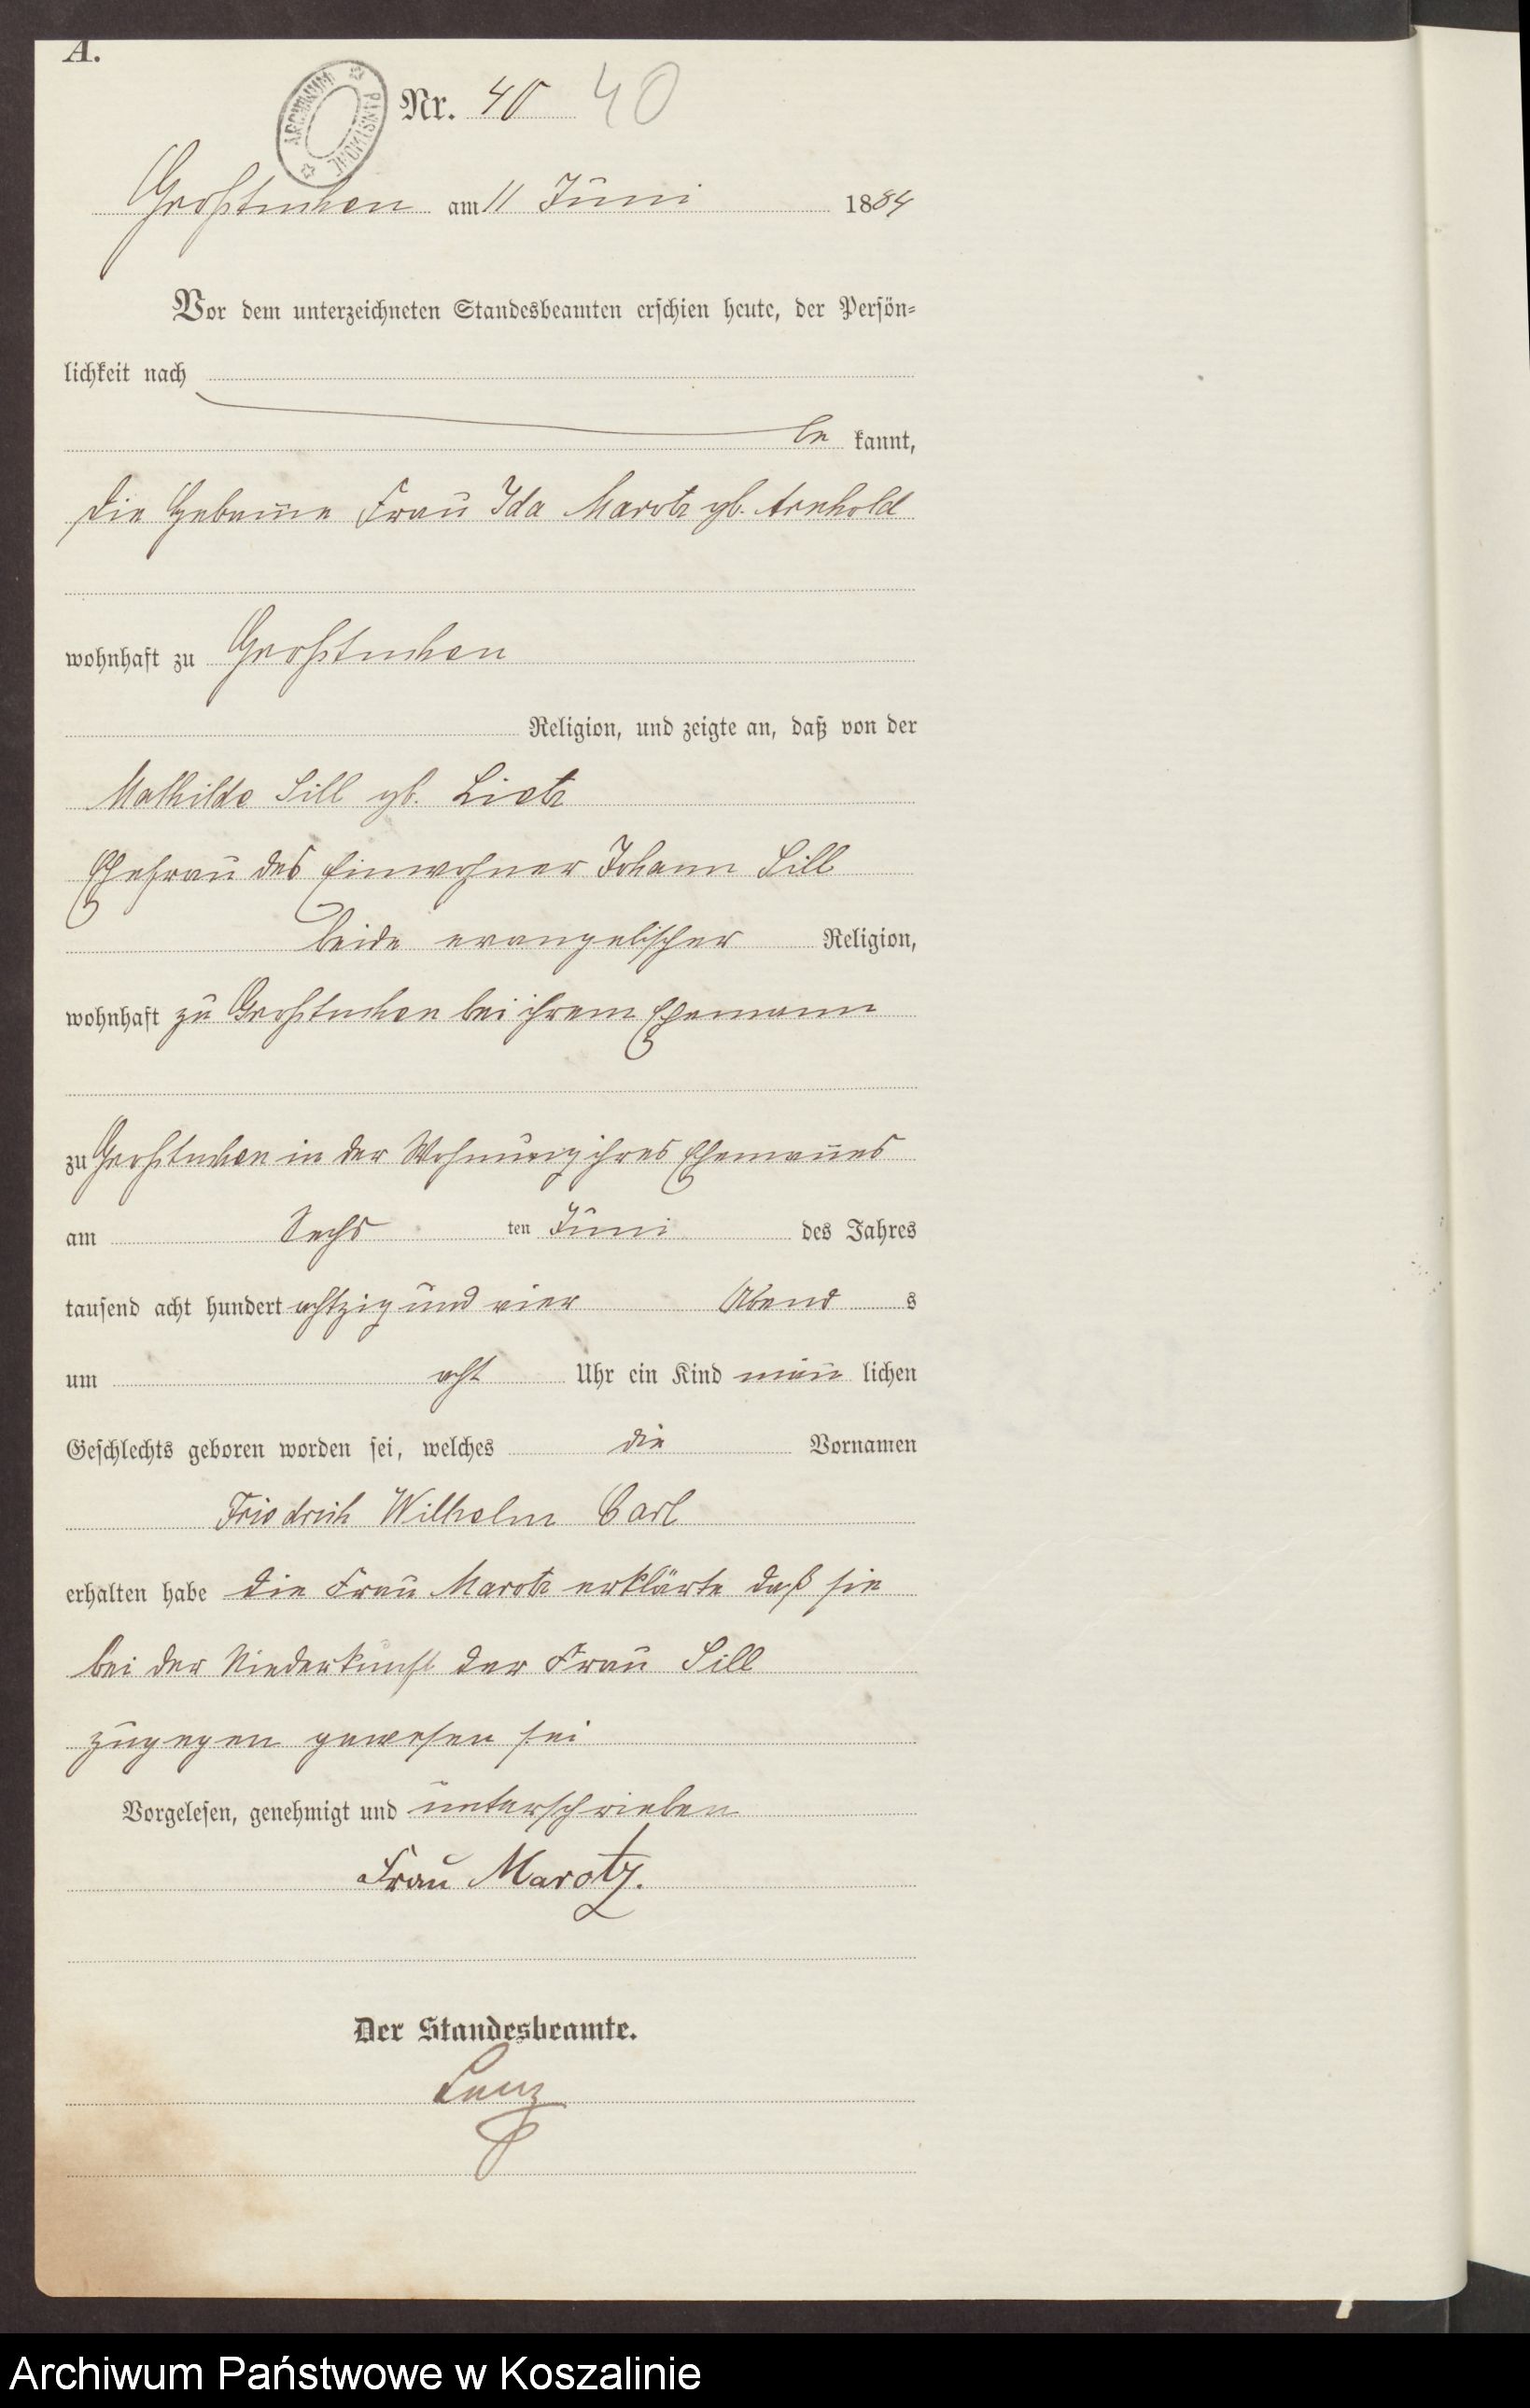 A.
ARCHIWUM PAŃSTWOWE
Nr. 40 40
Großtuchen am 11 Juni 1884
Vor dem unterzeichneten Standesbeamten erschien heute, der Persön-
lichkeit nach
be kannt,
die Hebamme Frau Ida Marotz gb. Arnhold
wohnhaft zu Großtuchen
Religion, und zeigte an, daß von der
Mathilde Sill gb. Lietz
Ehefrau des Einwohner Johann Sill
beide evangelischer Religion,
wohnhaft zu Großtuchen bei ihrem Ehemann
zu Großtuchen in der Wohnung ihres Ehemannes
am Sechs ten Juni des Jahres
tausend acht hundert achtzig und vier Abend s
um acht Uhr ein Kind männ lichen
Geschlechts geboren worden sei, welches die Vornamen
Friedrich Wilhelm Carl
erhalten habe die Frau Marotz erklärte daß sie
bei der Niederkunft der Frau Sill
zugegen gewesen sei
Vorgelesen, genehmigt und unterschrieben
Frau Marotz.
Der Standesbeamte.
Lenz
Archiwum Państwowe w Koszalinie